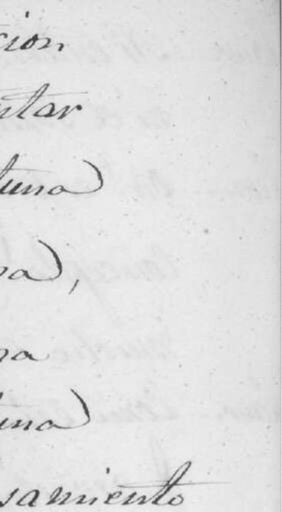 cion
ntar
tuna
na,
na
una
samiento